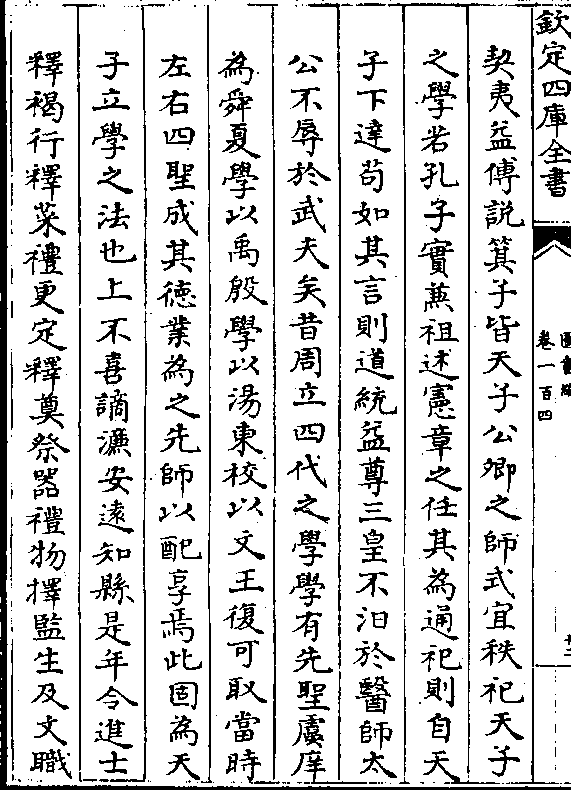 欽定四庫全書
卷一百四
契夷益傅説箕子皆天子公卿之師式宜秩祀天子
之學若孔子實兼祖述憲章之任其為通祀則自天
子下達苟如其言則道統益尊三皇不汨於醫師太
公不辱於武夫矣昔周立四代之學學有先聖虞庠
為舜夏學以禹殷學以湯東校以文王復可取當時
左右四聖成其徳業為之先師以配享焉此固為天
子立學之法也上不喜謫濂安遠知縣是年令進士
釋褐行釋菜禮更定釋奠祭器禮物擇監生及文職